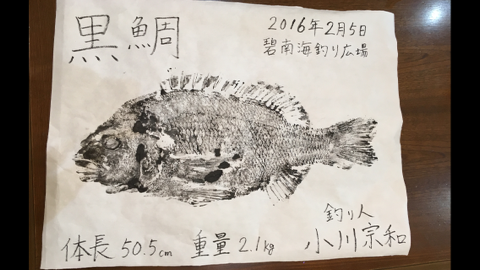 黒鯛
2016年2月5日
碧南海釣り広場
体長 50.5cm 重量 2.1kg
釣り人
小川宗和